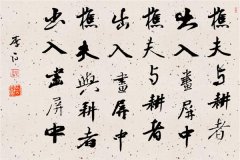 樵夫与耕者
出入畫屏中
樵夫与耕者
出入畫屏中
樵夫與耕者
出入畫屏中